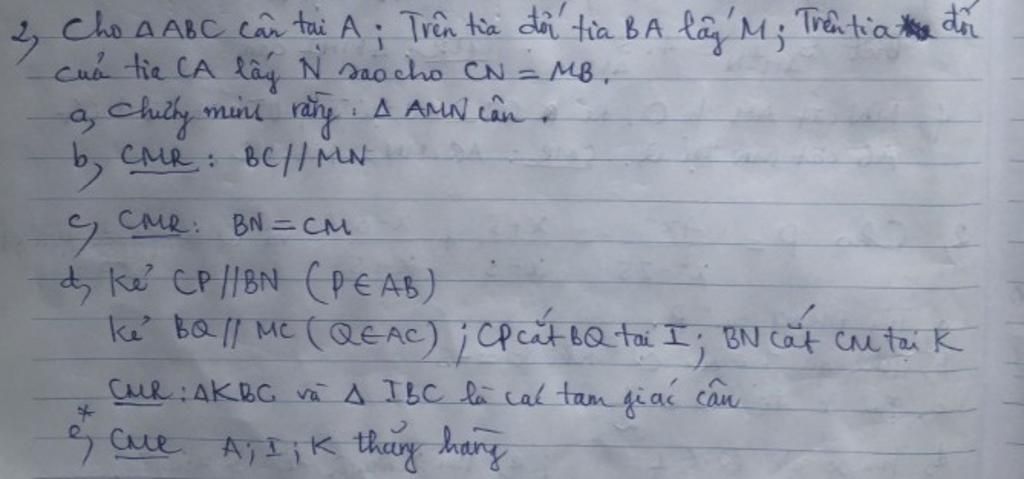 2, Cho ΔABC cân tại A ; Trên tia đối tia BA lấy M ; Trên tia đối
của tia CA lấy N sao cho CN = MB.
a, Chứng minh rằng : Δ AMN cân .
b, CMR : BC // MN
c, CMR : BN = CM
d, Kẻ CP // BN ( P ∈ AB )
Kẻ BQ // MC ( Q ∈ AC ) ; CP cắt BQ tại I ; BN cắt CM tại K
CMR : ΔKBC và Δ IBC là các tam giác cân
* e, CMR A ; I ; K thẳng hàng